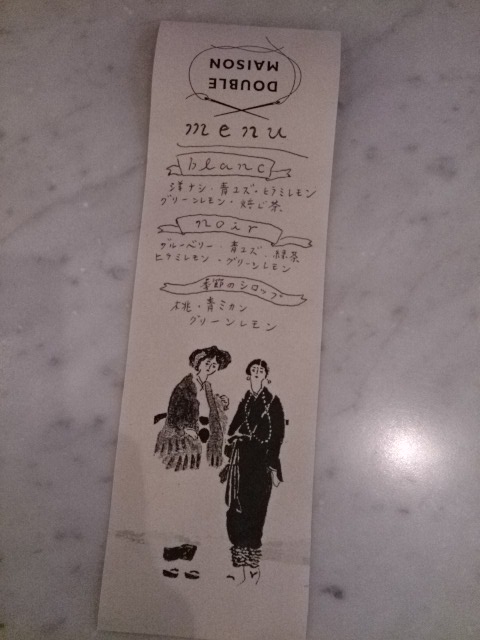 DOUBLE
MAISON
menu
blanc
洋ナシ・青ユズ・ヒラミレモン
グリーンレモン・焙じ茶
noir
ブルーベリー・青ユズ・緑茶
ヒラミレモン・グリーンレモン
季節のシロップ
桃・青ミカン
グリーンレモン